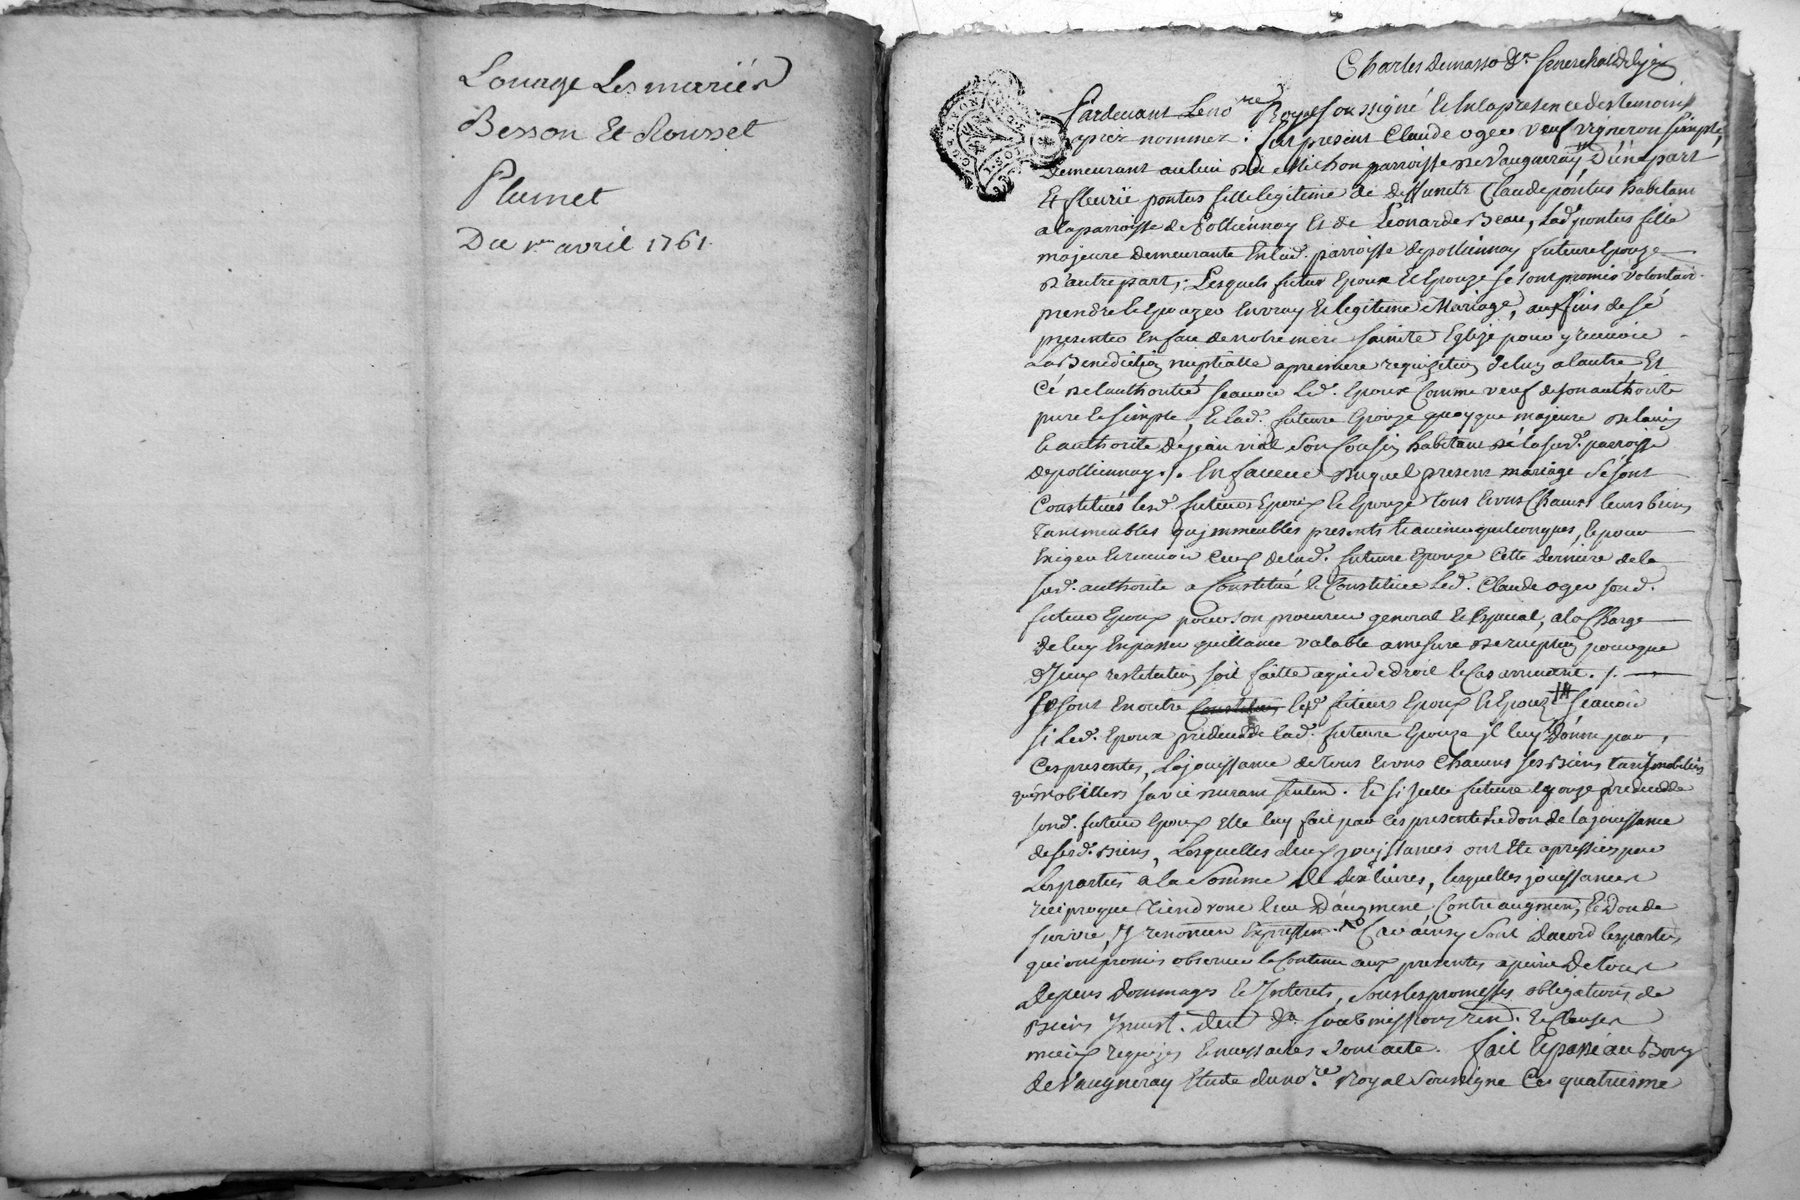 Louage Les mariés
Besson Et Rousset
Plumet
Du 1er avril 1761
Charles Demasso Gr. Senerchal De Lyon
Pardevant Le nore Royal soussigné Et En la presence des temoins
apres nommez : fut present Claude oger veuf vigneron
demeurant au lieu de Michon parroisse de Vaugneray D'une part
Et fleurie pontus fille legitime de deffunct Claude pontus habitant
a la parroisse de Pollionnay Et de Leonarde Beau, Lad. pontus fille
majeure demeurante En lad. parroisse de pollionnay future Epouze
D'autre part ; Lesquels futur Epoux Et Epouze se sont promis volontair.
prendre Et Epouzer En vray Et legitime Mariage, aux fins de sé
presenter En face de notre mere sainte Eglize pour y recevoir
La Benediction nuptialle a premiere requizition de lun a lautre, Et
Cé de lauthorité scavoir Led. Epoux Comme veuf de son authorité
pure Et simple, Et lad. future Epouze quoyque majeure de lavis
Et authorité de jean vial son Cousin habitant dé la sud. parroisse
de pollionnay ./. En faveur duquel present mariage sé sont
Constitués lesd. futurs Epoux Et Epouze tous Et uns Chacuns leurs biens
tant meubles qu'jmmeubles presents Et avenir quelconques, Et pour
Exiger Et recevoir Ceux de lad. future Epouze Cette derniere de la
sud. authorité a Constitué Et Constitue Led. Claude oger sond.
futur Epoux pour son procureur general Et Special, a la Charge
de luy En passer quittance valable a mesure de reception pour que
d'jceux restitution soit faitte a qui de droit le Cas arrivant ./.
Se sont En outre Constitués lesd. futurs Epoux Et Epouze scavoir
si Led. Epoux prédecedde lad. future Epouze jl luy donne par
Ces presentes, La jouissance de tous Et uns Chacuns ses Biens tant jmobiliers
que mobilliers sa vie durant seulem. Et si jcelle future Epouze predecedde
sond. futur Epoux Elle luy fait par Ces presentes le don de la jouissance
de sesd. Biens, Lesquelles deux jouissances ont Eté apretiées par
Les parties a la Somme de dix livres, lesquelles jouissances
reciproque tiendront lieu D'augment, Contre augment, Et Don de
survie, y renoncer Expressem. Car ainsy Sont d'acord les parties
qui ont promis observer le Contenu aux presentes a peine de tous
Depens Dommages Et Interets, Sous les promesses obligations de
Biens soubmissions rend. Et Clauses
mieux requizes Et necessaires dont acte. fait Et passé au Bourg
de Vaugneray Etude du nore. Royal Soussigné Ces quatriesme